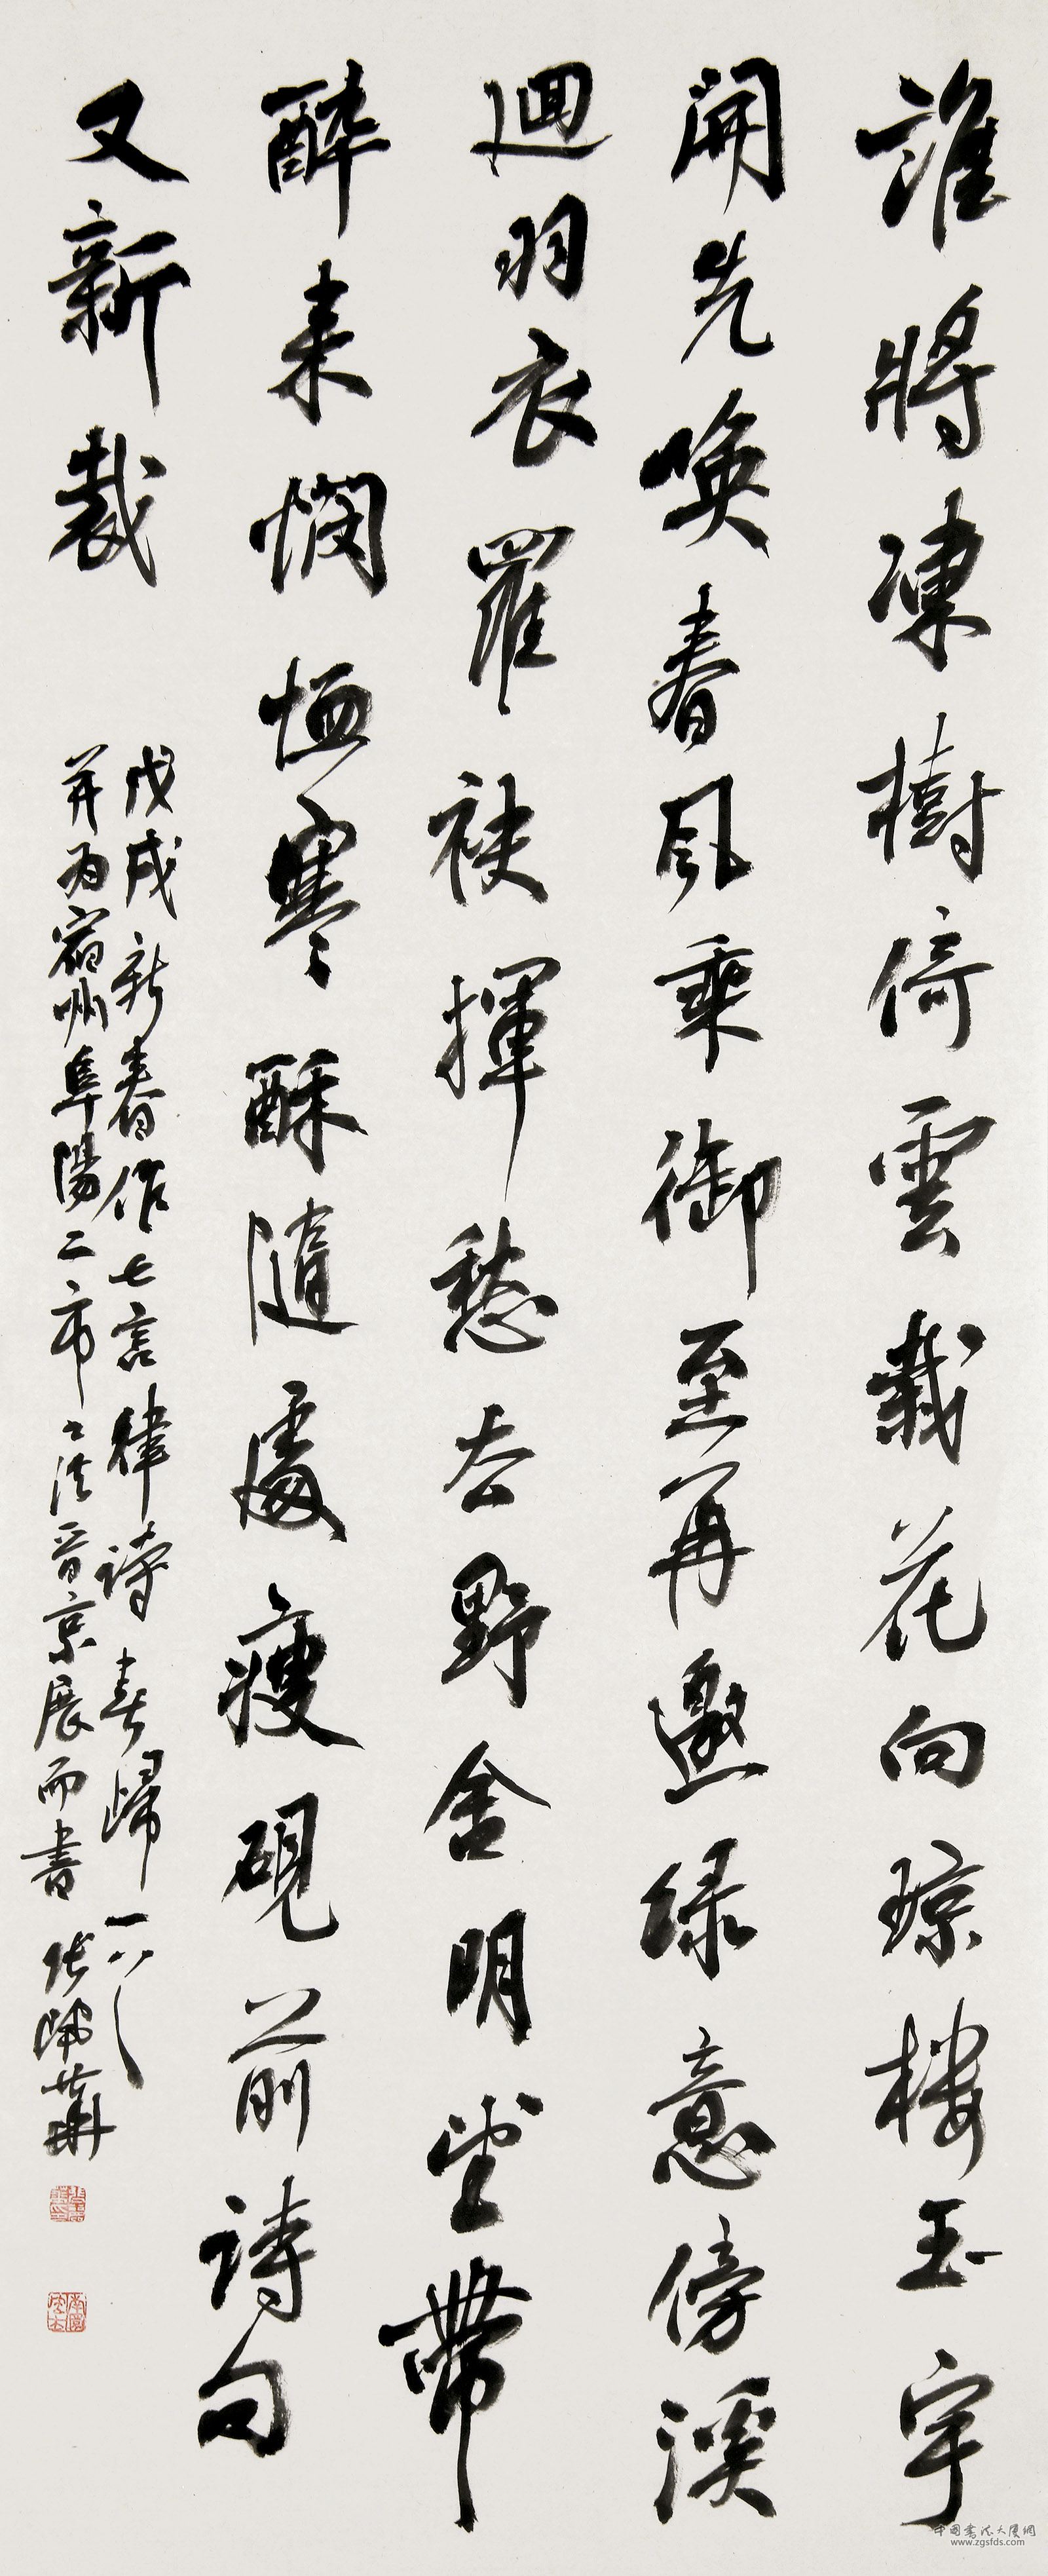 誰將凍樹倚雲栽花向琼樓玉宇
開先喚春風乘御至再邀綠意傍溪
迴羽衣羅袂揮愁去野舍明堂帶
醉来憫恤寒酥隨處瘦硯前詩句
又新裁
戊戌新春作七言律詩春歸一
并為宿州阜陽二市書法晉京展而書
中國書法大厦網
www.zgsfds.com